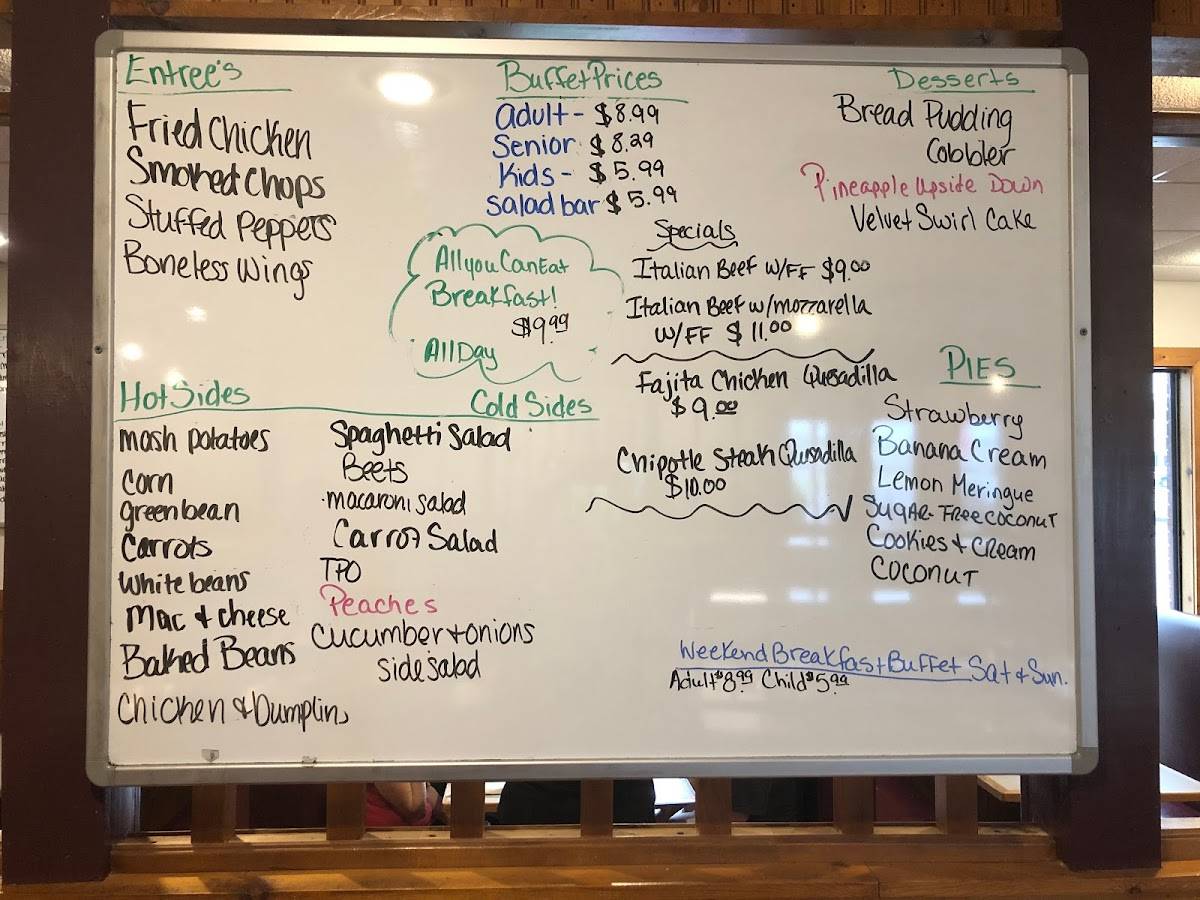 Entree's
Fried Chicken
Smoked Chops
Stuffed Peppers
Boneless Wings
Buffet Prices
Adult - $8.99
Senior $8.29
Kids - $5.99
Salad bar $5.99
Desserts
Bread Pudding
Cobbler
Pineapple Upside Down
Velvet Swirl Cake
All you Can Eat
Breakfast!
$9.99
All Day
Specials
Italian Beef w/FF $9.00
Italian Beef w/mozzarella
w/FF $11.00
Fajita Chicken Quesadilla
$9.00
Chipotle Steak Qusadilla
$10.00
PIES
Strawberry
Banana Cream
Lemon Meringue
Sugar-Free Coconut
Cookies & Cream
Coconut
Hot Sides
mash potatoes
Corn
green bean
Carrots
White beans
Mac & cheese
Baked Beans
Chicken & Dumplins
Cold Sides
Spaghetti Salad
Beets
macaroni salad
Carrot Salad
TPO
Peaches
Cucumber & onions
side salad
Weekend Breakfast Buffet Sat & Sun.
Adult $8.99 Child $5.99